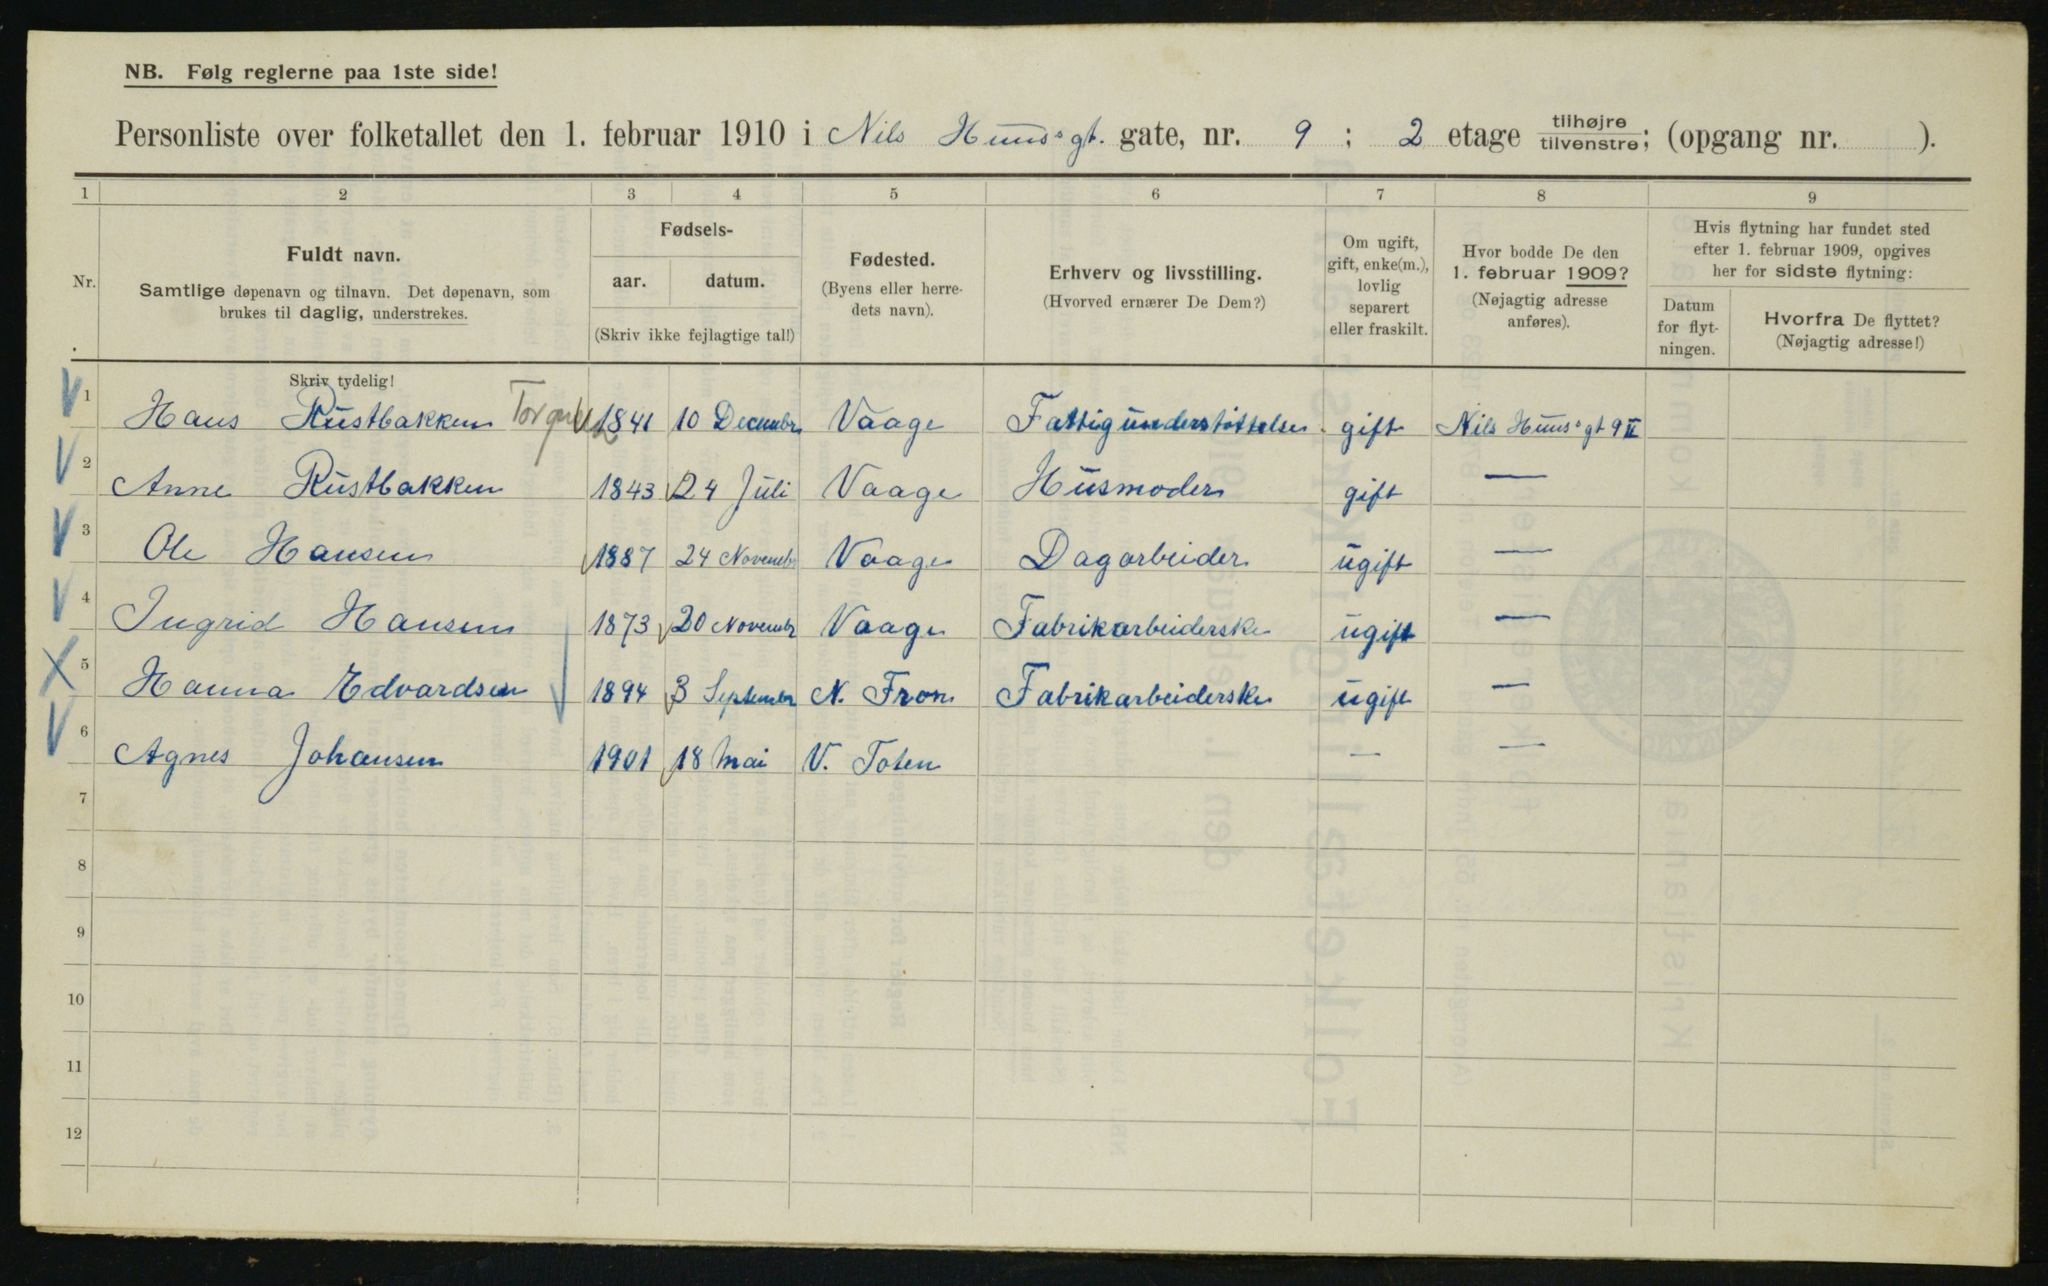 NB. Følg reglerne paa 1ste side!
Personliste over folketallet den 1. februar 1910 i Nils Huus's gt. gate, nr. 9 ; 2 etage tilhøjre tilvenstre; (opgang nr. ).
1 2 3 4 5 6 7 8 9
Nr.
Fuldt navn.
Samtlige døpenavn og tilnavn. Det døpenavn, som
brukes til daglig, understrekes.
Fødsels-
aar. datum.
(Skriv ikke fejlagtige tal!)
Fødested.
(Byens eller herre-
dets navn).
Erhverv og livsstilling.
(Hvorved ernærer De Dem?)
Om ugift,
gift, enke(m.),
lovlig
separert
eller fraskilt.
Hvor bodde De den
1. februar 1909?
(Nøjagtig adresse
anføres).
Hvis flytning har fundet sted
efter 1. februar 1909, opgives
her for sidste flytning:
Datum
for flyt-
ningen.
Hvorfra De flyttet?
(Nøjagtig adresse!)
Skriv tydelig!
1 Hans Rustbakken 1841 10 Decembr Vaage Fattigunderstöttelse gift Nils Huus's gt 9 II
2 Anne Rustbakken 1843 24 Juli Vaage Husmoder gift —
3 Ole Hansen 1887 24 Novembr Vaage Dagarbeider ugift —
4 Ingrid Hansen 1873 20 Novembr Vaage Fabrikarbeiderske ugift —
5 Hanna Edvardsen 1894 3 Septembr N. Fron Fabrikarbeiderske ugift —
6 Agnes Johansen 1901 18 Mai V. Toten — —
7
8
9
10
11
12